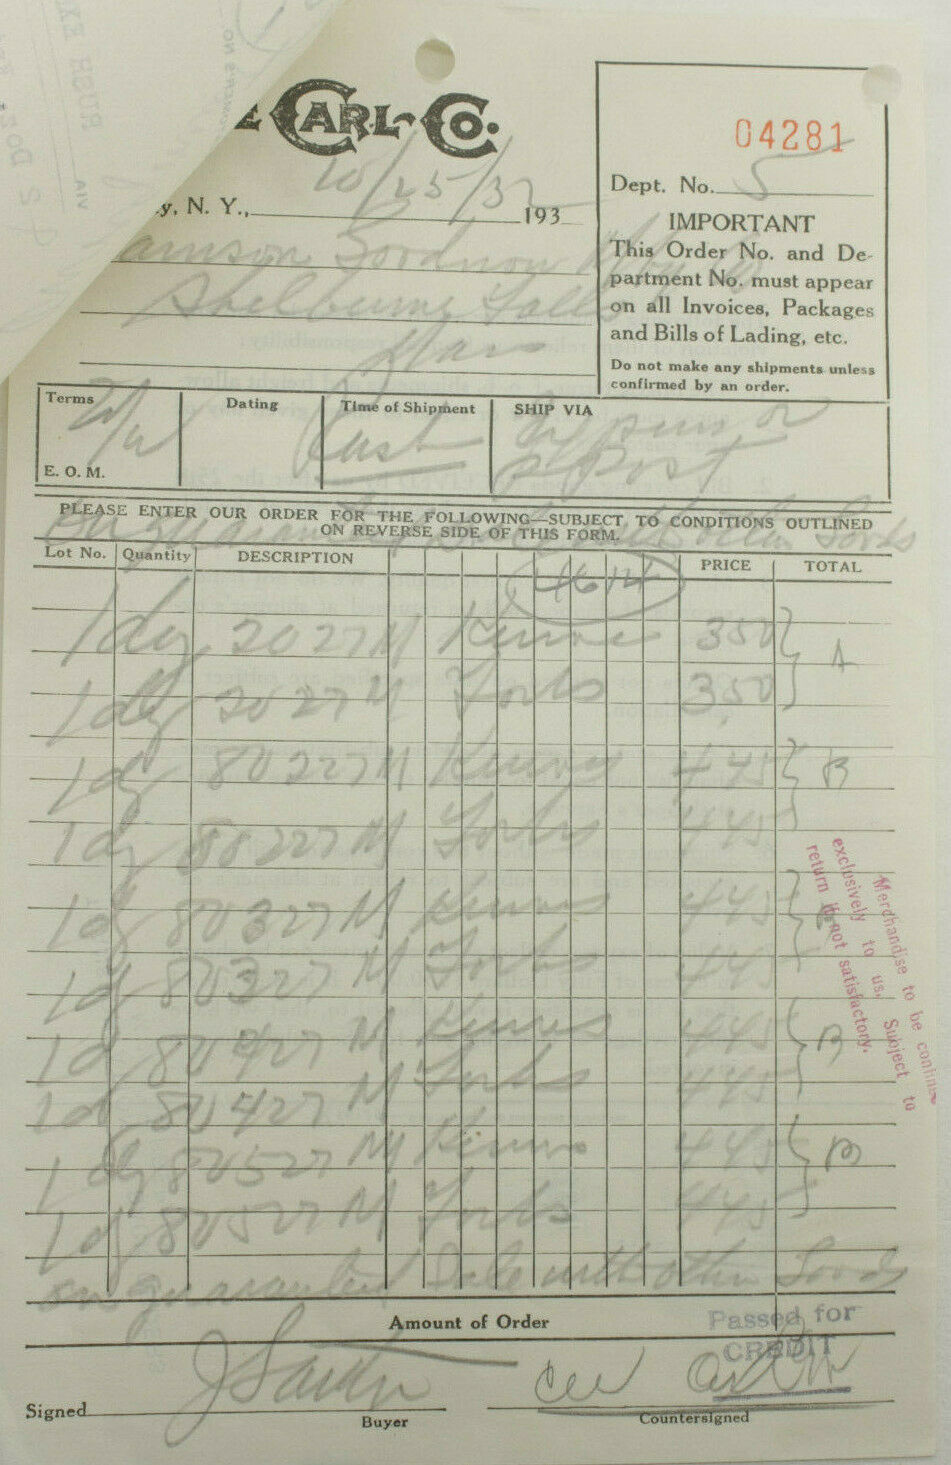 CARL-CO.
04281
Dept. No. 5
y, N. Y., 10/25/32 193
IMPORTANT
This Order No. and De-
partment No. must appear
on all Invoices, Packages
and Bills of Lading, etc.
Do not make any shipments unless
confirmed by an order.
amson Goodnow
Shelburne Falls
Mass
Terms Dating Time of Shipment SHIP VIA
E. O. M.
Rush Express or
P Post
PLEASE ENTER OUR ORDER FOR THE FOLLOWING—SUBJECT TO CONDITIONS OUTLINED
ON REVERSE SIDE OF THIS FORM.
on guaranteed Sale with other Goods
Lot No. Quantity DESCRIPTION PRICE TOTAL
4614
1 dz 2027 M Knives 350 A
1 dz 2027 M Forks 3.50
1 dz 80227 M Knives 445 B
1 dz 80227 M Forks 445
1 dz 80327 M Knives 445 B
1 dz 80327 M Forks 445
1 dz 80427 M Knives 445 B
1 dz 80427 M Forks 445
1 dz 80527 M Knives 445 B
1 dz 80527 M Forks 445
on guaranteed Sale with other Goods
Merchandise to be confine
exclusively to us. Subject to
return if not satisfactory.
Amount of Order
Passed for
CREDIT
Signed
Buyer
Countersigned